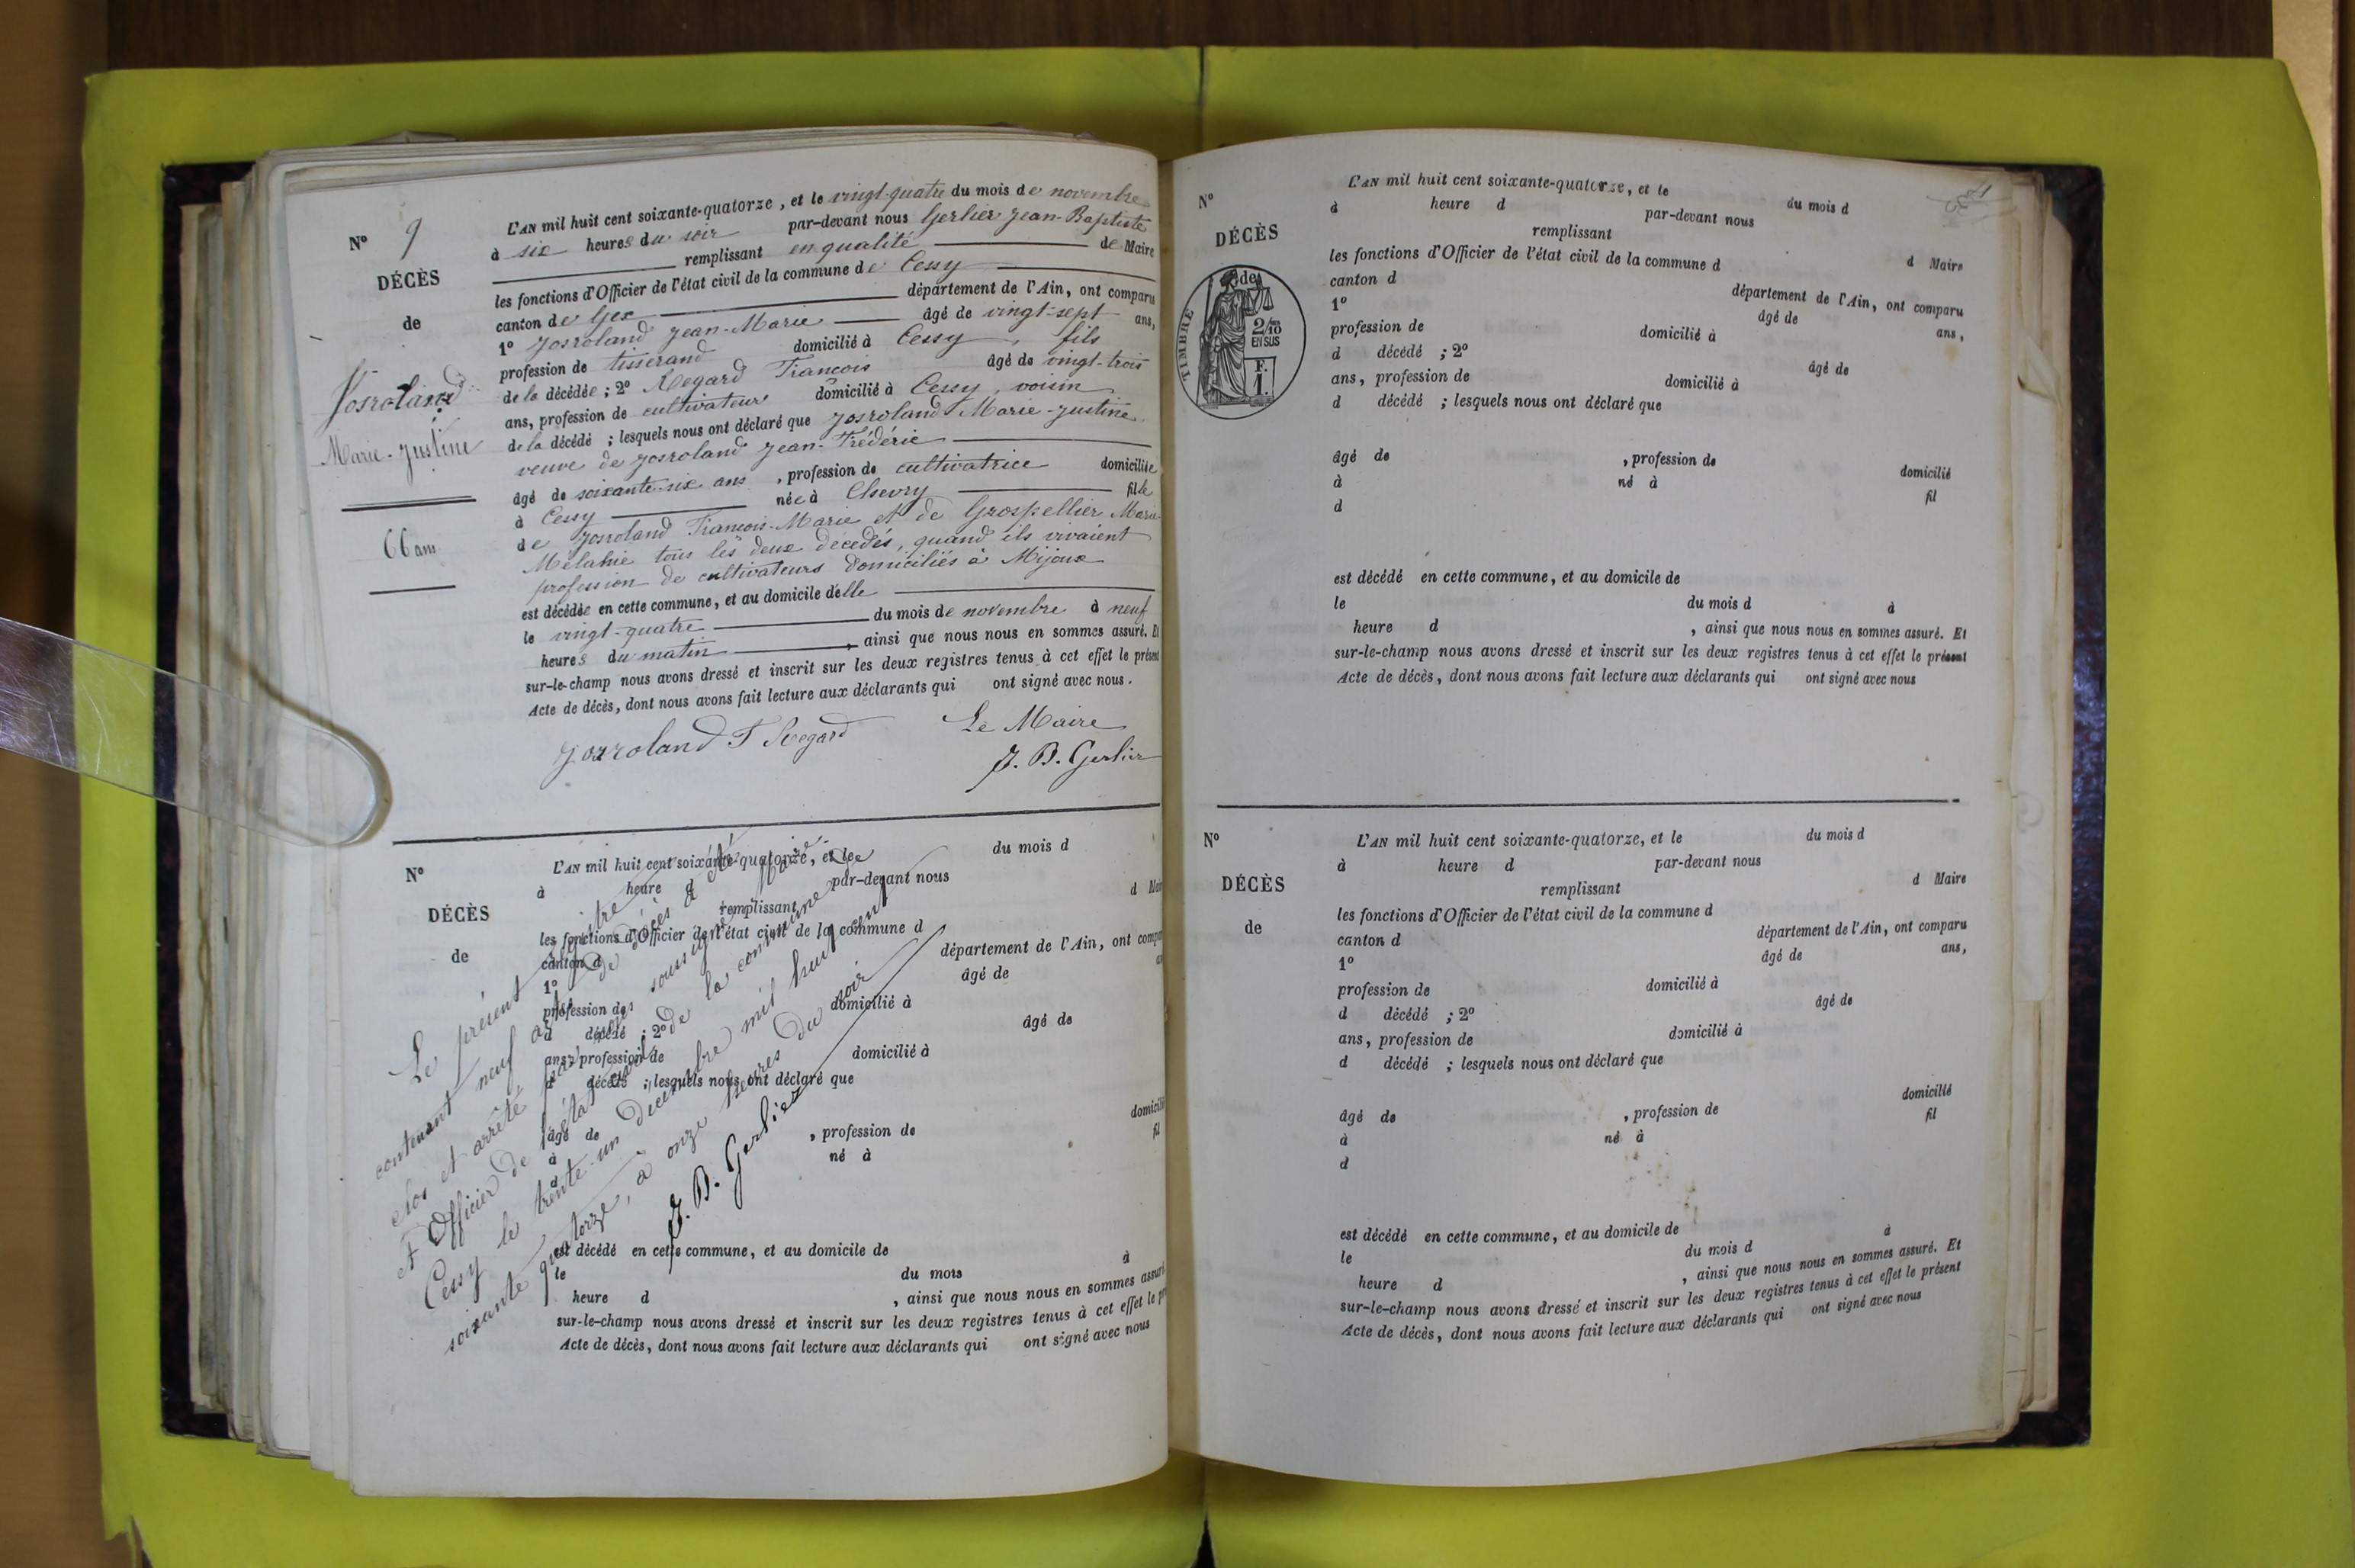 N° 9
DÉCÈS
de
Josroland
Marie-Justine
66 ans
L'AN mil huit cent soixante-quatorze, et le vingt-quatre du mois de novembre
à six heures du soir par-devant nous Gerlier Jean-Baptiste
remplissant en qualité de Maire
les fonctions d'Officier de l'état civil de la commune de Cessy
canton de Gex département de l'Ain, ont comparu
1° Josroland Jean-Marie âgé de vingt-sept ans,
profession de tisserand domicilié à Cessy, fils
de la décédée ; 2° Regard François âgé de vingt-trois
ans, profession de cultivateur domicilié à Cessy, voisin
de la décédé ; lesquels nous ont déclaré que Josroland Marie-Justine
veuve de Josroland Jean-Frédéric
âgé de soixante-six ans, profession de cultivatrice domiciliée
à Cessy née à Chevry fille
de Josroland François-Marie et de Grospellier Marie
Mélanie tous les deux décédés, quand ils vivaient
profession de cultivateurs domiciliés à Mijoux
est décédée en cette commune, et au domicile d'elle
le vingt-quatre du mois de novembre à neuf
heures du matin, ainsi que nous nous en sommes assuré. Et
sur-le-champ nous avons dressé et inscrit sur les deux registres tenus à cet effet le présent
Acte de décès, dont nous avons fait lecture aux déclarants qui ont signé avec nous.
Josroland F Regard Le Maire
J. B. Gerlier
N°
DÉCÈS
de
L'AN mil huit cent soixante-quatorze, et le du mois d
à heure d par-devant nous
remplissant d Mair
les fonctions d'Officier de l'état civil de la commune d
canton d département de l'Ain, ont compa
1° âgé de
profession de domicilié à
d décédé ; 2° âgé de
ans, profession de domicilié à
d décédé ; lesquels nous ont déclaré que
âgé de , profession de domicilié
à né à fil
d
est décédé en cette commune, et au domicile de
le du mois à
heure d , ainsi que nous nous en sommes assuré
sur-le-champ nous avons dressé et inscrit sur les deux registres tenus à cet effet le pr
Acte de décès, dont nous avons fait lecture aux déclarants qui ont signé avec nous
Le présent registre
contenant neuf actes de décès a été
clos et arrêté par nous soussigné Maire
et Officier de l'état civil de la commune de
Cessy le trente-un décembre mil huit cent
soixante quatorze, à onze heures du soir
J. B. Gerlier
N°
DÉCÈS
de
TIMBRE
2/10
EN SUS
F.
1.
L'AN mil huit cent soixante-quatorze, et le du mois d
à heure d par-devant nous
remplissant d Maire
les fonctions d'Officier de l'état civil de la commune d
canton d département de l'Ain, ont comparu
1° âgé de ans,
profession de domicilié à
d décédé ; 2° âgé de
ans, profession de domicilié à
d décédé ; lesquels nous ont déclaré que
âgé de , profession de domicilié
à né à fil
d
est décédé en cette commune, et au domicile de
le du mois d à
heure d , ainsi que nous nous en sommes assuré. Et
sur-le-champ nous avons dressé et inscrit sur les deux registres tenus à cet effet le présent
Acte de décès, dont nous avons fait lecture aux déclarants qui ont signé avec nous
N°
DÉCÈS
de
L'AN mil huit cent soixante-quatorze, et le du mois d
à heure d par-devant nous
remplissant d Maire
les fonctions d'Officier de l'état civil de la commune d
canton d département de l'Ain, ont comparu
1° âgé de ans,
profession de domicilié à
d décédé ; 2° âgé de
ans, profession de domicilié à
d décédé ; lesquels nous ont déclaré que
âgé de , profession de domicilié
à né à fil
d
est décédé en cette commune, et au domicile de
le du mois d à
heure d , ainsi que nous nous en sommes assuré. Et
sur-le-champ nous avons dressé et inscrit sur les deux registres tenus à cet effet le présent
Acte de décès, dont nous avons fait lecture aux déclarants qui ont signé avec nous